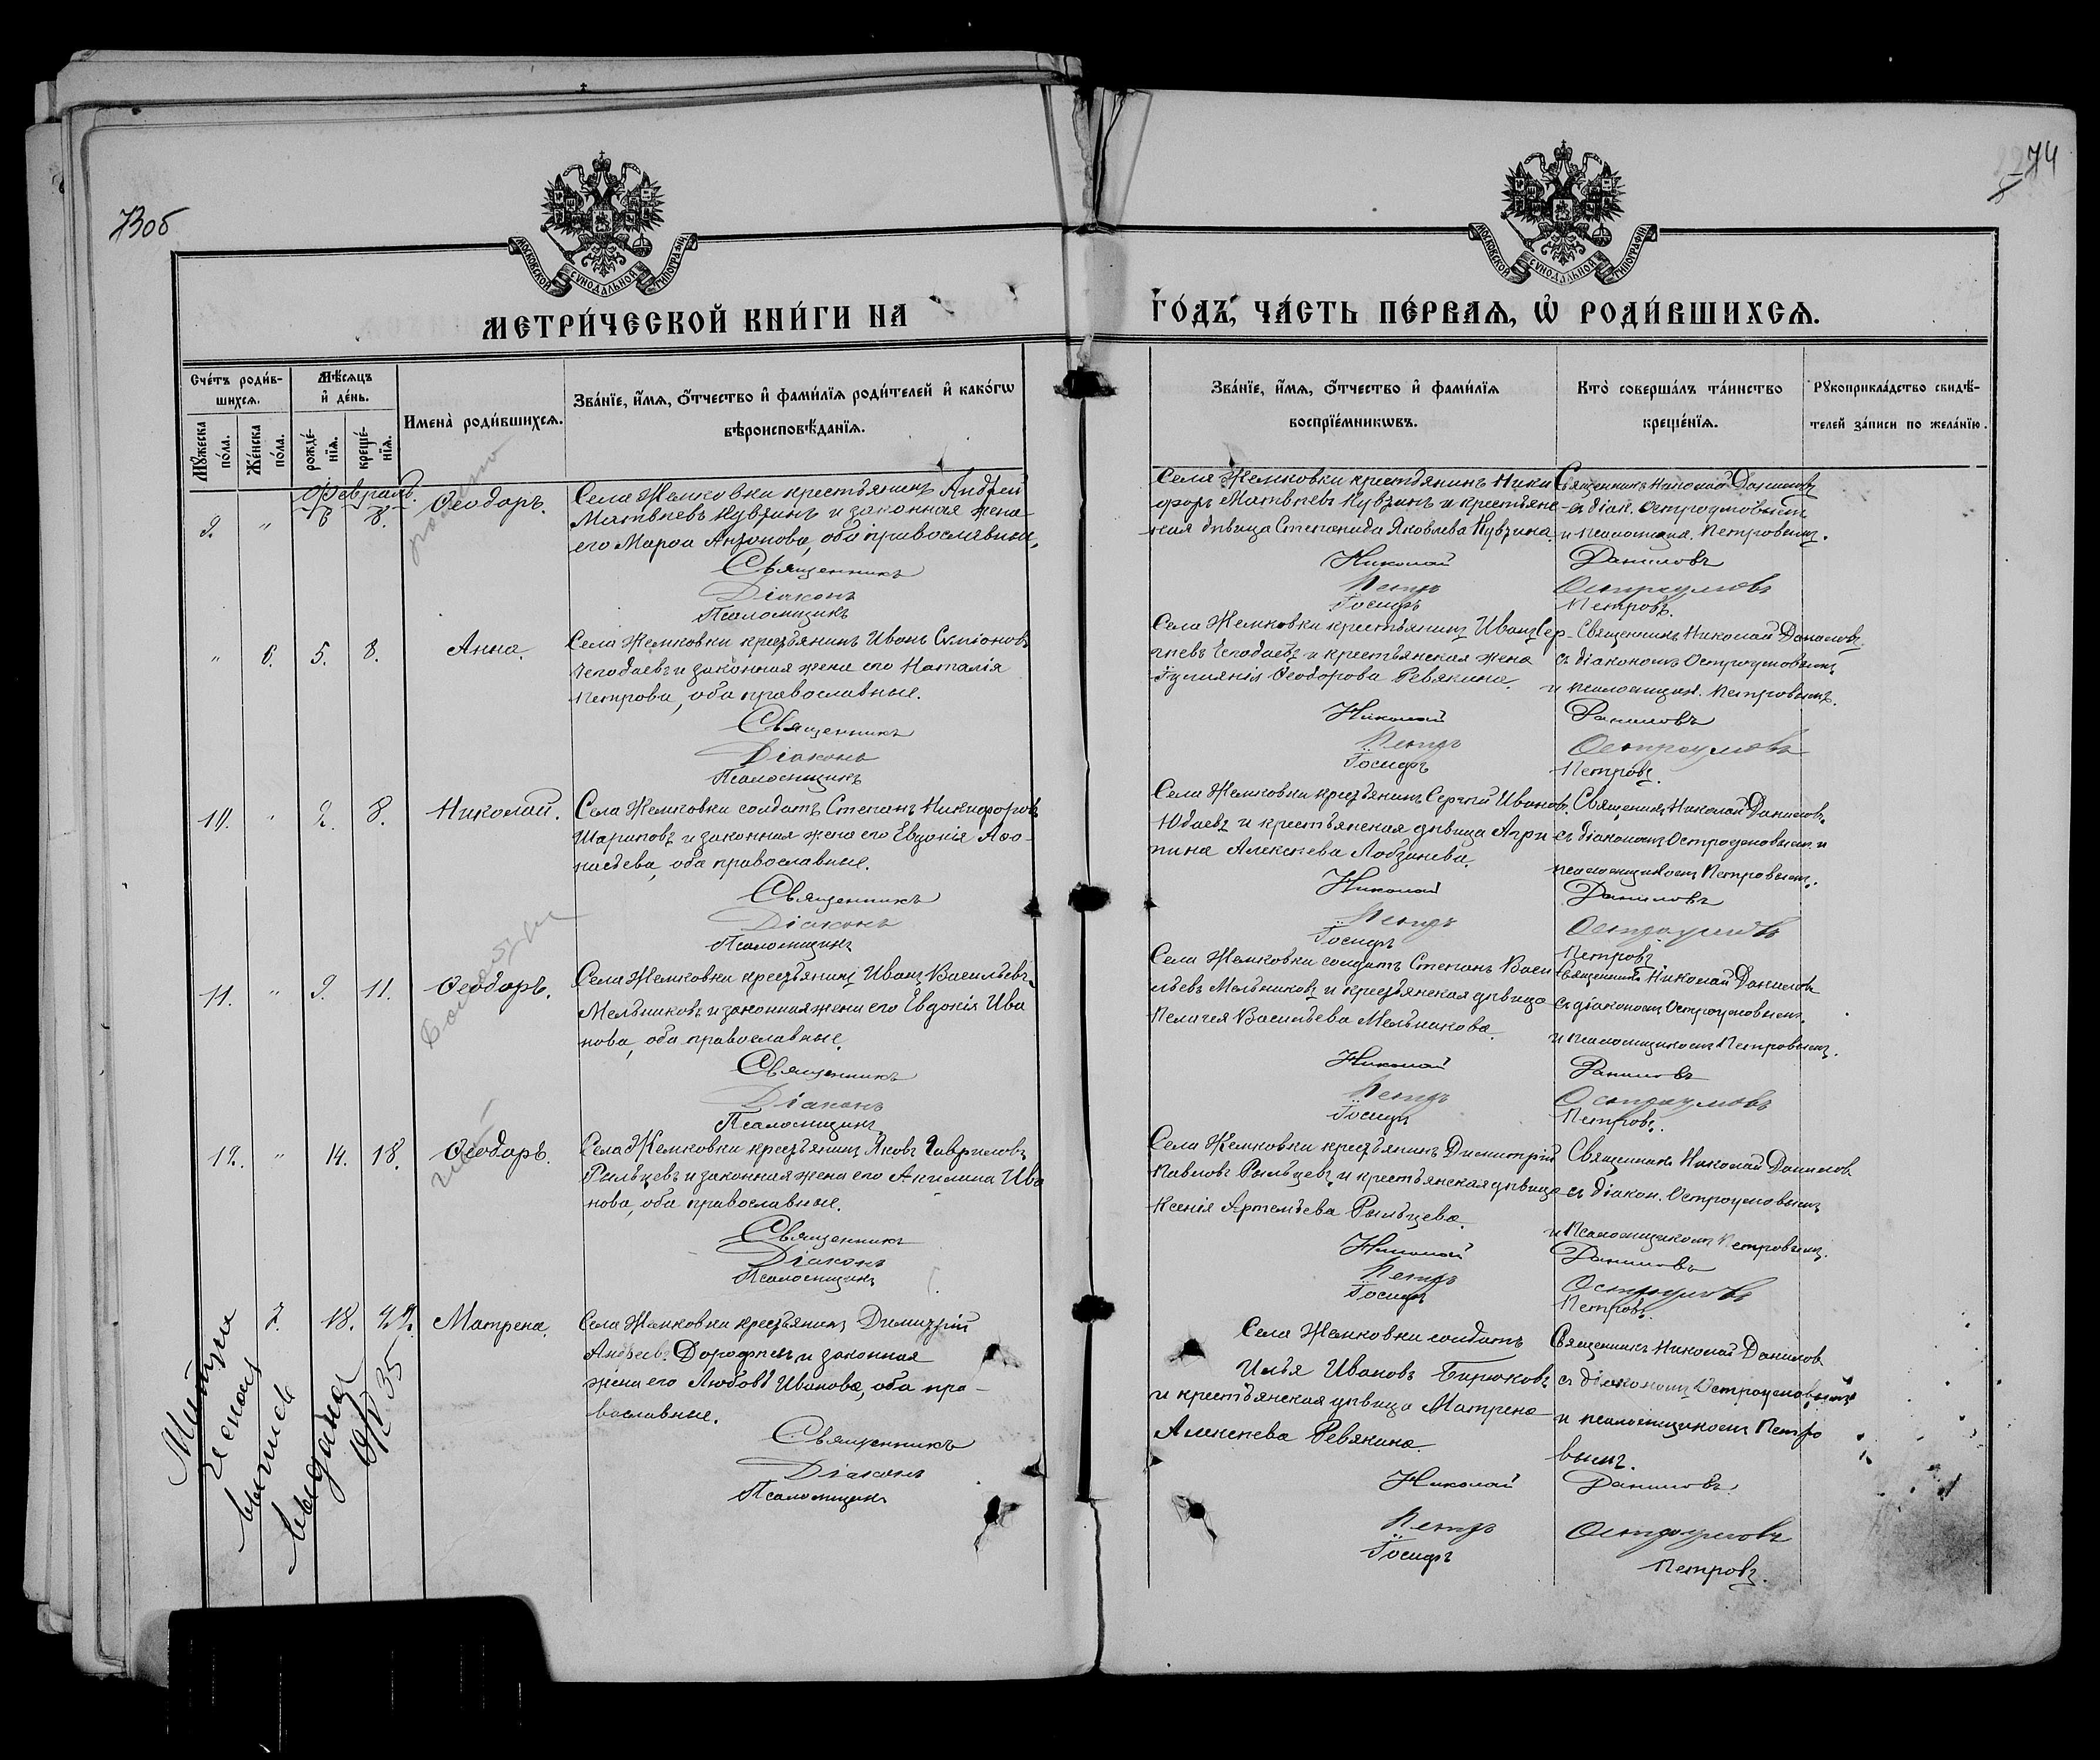 73об
74
МОСКОВСКОЙ СѴНОДАЛЬНОЙ ТИПОГРАФІИ
МОСКОВСКОЙ СѴНОДАЛЬНОЙ ТИПОГРАФІИ
МЕТРИ́ЧЕСКОЙ КНИ́ГИ НА
ГО́ДЪ, ЧА́СТЬ ПЕ́РВАѦ, Ѡ҆ РОДИ́ВШИХСѦ.
Сче́тъ роди́в-
шихсѧ.
Мꙋ́жеска по́ла.
Же́нска по́ла.
Мѣ́сѧцъ
и҆ де́нь.
рожде́-
нїѧ.
креще́-
нїѧ.
Имена̀ роди́вшихсѧ.
Зва́нїе, и҆́мѧ, ѻ҆́тчество и҆ фами́лїѧ роди́телей и҆ како́гѡ
вѣроисповѣ́данїѧ.
Зва́нїе, и҆́мѧ, ѻ҆́тчество и҆ фами́лїѧ
воспрїе́мникѡвъ.
Кто̀ соверша́лъ та́инство
креще́нїѧ.
Рꙋкоприкла́дство свидѣ́-
телей за́писи по жела́нїю.
Февраль.
9. " 6 8. Ѳеодоръ.
Села Жемковки крестьянинъ Андрей
Матвѣевъ Кувзинъ и законная жена
его Марѳа Антонова, оба православные.
Священникъ
Діаконъ
Псаломщикъ
Села Жемковки крестьянинъ Ники
форъ Матвѣевъ Кувзинъ и крестьянс-
кая дѣвица Степанида Яковлева Кувзина.
Николай
Петръ
Іосифъ
Священникъ Николай Даниловъ
съ діак. Остроумовымъ
и псаломщик. Петровымъ.
Даниловъ
Остроумовъ
Петровъ.
" 6. 5. 8. Анна.
Села Жемковки крестьянинъ Иванъ Симіоновъ
Чегодаевъ и законная жена его Наталія
Петрова, оба православные.
Священникъ
Діаконъ
Псаломщикъ
Села Жемковки крестьянинъ Иванъ Сер-
гѣевъ Чегодаевъ и крестьянская жена
Іуліянія Ѳеодорова Ревякина.
Николай
Петръ
Іосифъ
Священникъ Николай Даниловъ
съ діакономъ Остроумовымъ
и псаломщик. Петровымъ.
Даниловъ
Остроумовъ
Петровъ.
10. " 2. 8. Николай.
Села Жемковки солдатъ Степанъ Никифоровъ
Шариповъ и законная жена его Евдокія Аѳа-
насьева, оба православные.
Священникъ
Діаконъ
Псаломщикъ
Села Жемковки крестьянинъ Сергѣй Ивановъ
Юдаевъ и крестьянская дѣвица Агри
пина Алексѣева Лобзинева.
Николай
Петръ
Іосифъ
Священникъ Николай Даниловъ
съ діакономъ Остроумовымъ и
псаломщикомъ Петровымъ.
Даниловъ
Остроумовъ
Петровъ
11. " 9. 11. Ѳеодоръ.
Села Жемковки крестьянинъ Иванъ Васильевъ
Мельниковъ и законная жена его Евдокія Ива
нова, оба православные.
Священникъ
Діаконъ
Псаломщикъ
Села Жемковки солдатъ Степанъ Васи
льевъ Мельниковъ и крестьянская дѣвица
Пелагея Васильева Мельникова.
Николай
Петръ
Іосифъ
Священникъ Николай Даниловъ
съ діакономъ Остроумовымъ
и псаломщикомъ Петровымъ.
Даниловъ
Остроумовъ
Петровъ.
12. " 14. 18. Ѳеодоръ.
Села Жемковки крестьянинъ Яковъ Гавриловъ
Рыльцевъ и законная жена его Акилина Ива
нова, оба православные.
Священникъ
Діаконъ
Псаломщикъ
Села Жемковки крестьянинъ Димитрій
Павловъ Рыльцевъ и крестьянская дѣвица
Ксенія Артемьева Рыльцева.
Николай
Петръ
Іосифъ
Священникъ Николай Даниловъ
съ діакон. Остроумовымъ
и псаломщикомъ Петровымъ.
Даниловъ
Остроумовъ
Петровъ.
7. 18. 22. Матрена.
Села Жемковки крестьянинъ Димитрій
Андреевъ Дорофѣевъ и законная
жена его Любовь Иванова, оба пра-
вославные.
Священникъ
Діаконъ
Псаломщикъ
Села Жемковки солдатъ
Илья Ивановъ Бирюковъ
и крестьянская дѣвица Матрена
Алексѣева Ревякина.
Николай
Петръ
Іосифъ
Священникъ Николай Даниловъ
съ діакономъ Остроумовымъ
и псаломщикомъ Петро
вымъ.
Даниловъ
Остроумовъ
Петровъ.
выдана
35